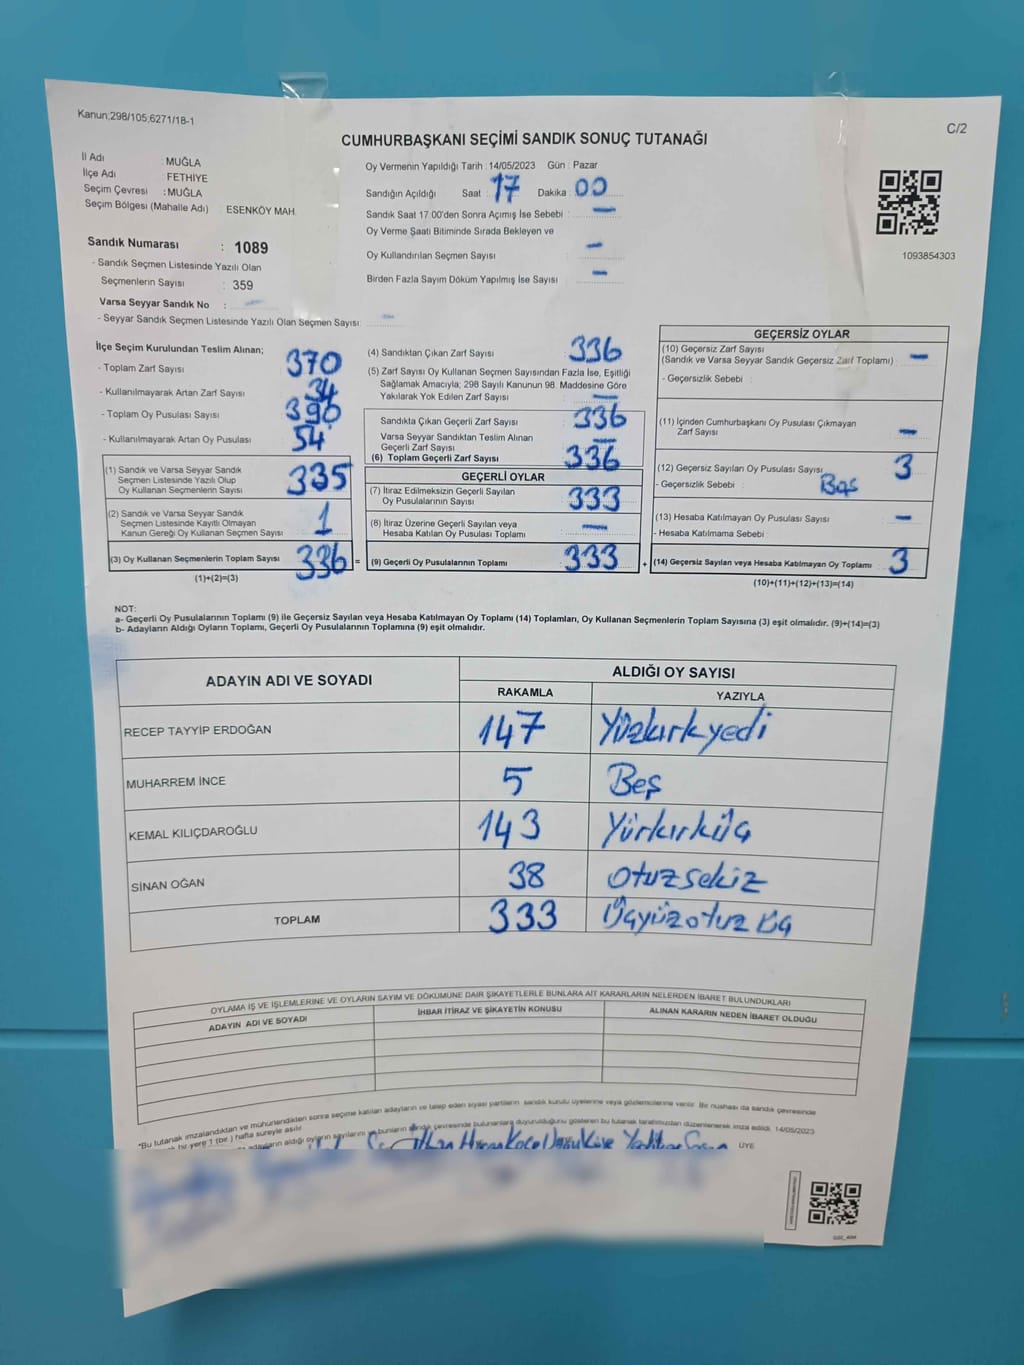 Kanun;298/105;6271/18-1
C/2
CUMHURBAŞKANI SEÇİMİ SANDIK SONUÇ TUTANAĞI
İl Adı : MUĞLA
İlçe Adı : FETHİYE
Seçim Çevresi : MUĞLA
Seçim Bölgesi (Mahalle Adı) : ESENKÖY MAH.
Sandık Numarası : 1089
- Sandık Seçmen Listesinde Yazılı Olan
Seçmenlerin Sayısı : 359
Varsa Seyyar Sandık No : -
- Seyyar Sandık Seçmen Listesinde Yazılı Olan Seçmen Sayısı: -
Oy Vermenin Yapıldığı Tarih :14/05/2023 Gün : Pazar
Sandığın Açıldığı Saat : 17 Dakika : 00
Sandık Saat 17:00'den Sonra Açımış İse Sebebi : -
Oy Verme Saati Bitiminde Sırada Bekleyen ve
Oy Kullandırılan Seçmen Sayısı : -
Birden Fazla Sayım Döküm Yapılmış İse Sayısı : -
1093854303
İlçe Seçim Kurulundan Teslim Alınan;
- Toplam Zarf Sayısı : 370
- Kullanılmayarak Artan Zarf Sayısı : 34
- Toplam Oy Pusulası Sayısı : 390
- Kullanılmayarak Artan Oy Pusulası : 54
(1) Sandık ve Varsa Seyyar Sandık
Seçmen Listesinde Yazılı Olup
Oy Kullanan Seçmenlerin Sayısı : 335
(2) Sandık ve Varsa Seyyar Sandık
Seçmen Listesinde Kayıtlı Olmayan
Kanun Gereği Oy Kullanan Seçmen Sayısı : 1
(3) Oy Kullanan Seçmenlerin Toplam Sayısı : 336 =
(1)+(2)=(3)
(4) Sandıktan Çıkan Zarf Sayısı : 336
(5) Zarf Sayısı Oy Kullanan Seçmen Sayısından Fazla İse, Eşitliği
Sağlamak Amacıyla; 298 Sayılı Kanunun 98. Maddesine Göre
Yakılarak Yok Edilen Zarf Sayısı : -
Sandıkta Çıkan Geçerli Zarf Sayısı : 336
Varsa Seyyar Sandıktan Teslim Alınan
Geçerli Zarf Sayısı : -
(6) Toplam Geçerli Zarf Sayısı : 336
GEÇERLİ OYLAR
(7) İtiraz Edilmeksizin Geçerli Sayılan
Oy Pusulalarının Sayısı : 333
(8) İtiraz Üzerine Geçerli Sayılan veya
Hesaba Katılan Oy Pusulası Toplamı : -
(9) Geçerli Oy Pusulalarının Toplamı : 333 +
GEÇERSİZ OYLAR
(10) Geçersiz Zarf Sayısı
(Sandık ve Varsa Seyyar Sandık Geçersiz Zarf Toplamı) : -
- Geçersizlik Sebebi :
(11) İçinden Cumhurbaşkanı Oy Pusulası Çıkmayan
Zarf Sayısı : -
(12) Geçersiz Sayılan Oy Pusulası Sayısı : 3
- Geçersizlik Sebebi : Boş
(13) Hesaba Katılmayan Oy Pusulası Sayısı : -
- Hesaba Katılmama Sebebi
(14) Geçersiz Sayılan veya Hesaba Katılmayan Oy Toplamı : 3
(10)+(11)+(12)+(13)=(14)
NOT:
a- Geçerli Oy Pusulalarının Toplamı (9) ile Geçersiz Sayılan veya Hesaba Katılmayan Oy Toplamı (14) Toplamları, Oy Kullanan Seçmenlerin Toplam Sayısına (3) eşit olmalıdır. (9)+(14)=(3)
b- Adayların Aldığı Oyların Toplamı, Geçerli Oy Pusulalarının Toplamına (9) eşit olmalıdır.
ADAYIN ADI VE SOYADI ALDIĞI OY SAYISI
RAKAMLA YAZIYLA
RECEP TAYYİP ERDOĞAN 147 Yüzkırkyedi
MUHARREM İNCE 5 Beş
KEMAL KILIÇDAROĞLU 143 Yüzkırküç
SİNAN OĞAN 38 Otuzsekiz
TOPLAM 333 Üçyüzotuz üç
OYLAMA İŞ VE İŞLEMLERİNE VE OYLARIN SAYIM VE DÖKÜMÜNE DAİR ŞİKAYETLERLE BUNLARA AİT KARARLARIN NELERDEN İBARET BULUNDUKLARI
ADAYIN ADI VE SOYADI İHBAR İTİRAZ VE ŞİKAYETİN KONUSU ALINAN KARARIN NEDEN İBARET OLDUĞU
*Bu tutanak imzalandıktan ve mühürlendikten sonra seçime katılan adayların ve talep eden siyasi partilerin sandık kurulu üyelerine veya gözlemcilerine verilir. Bir nüshası da sandık çevresinde
bir yere 1 (bir ) hafta süreyle asılır.
adayların aldığı oyların sayılarını ve bunların sandık çevresinde bulunanlara duyurulduğunu gösteren bu tutanak tarafımızdan düzenlenerek imza edildi. 14/05/2023
ÜYE